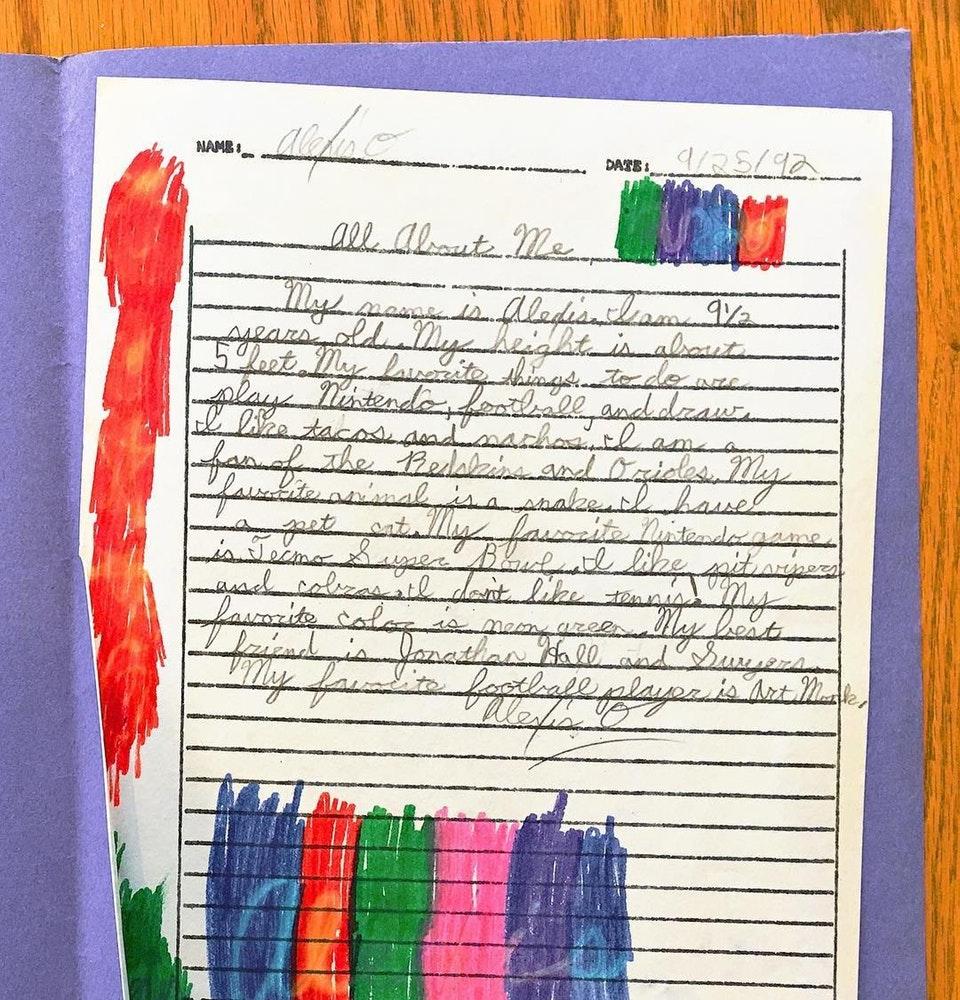 NAME: Alexis O DATE: 9/25/92
All About Me
My name is Alexis. I am 9½
years old. My height is about
5 feet. My favorite things to do are
play Nintendo, football, and draw.
I like tacos and nachos. I am a
fan of the Redskins and Orioles. My
favorite animal is a snake. I have
a pet cat. My favorite Nintendo game
is Tecmo Super Bowl. I like pit vipers
and cobras. I don't like tennis. My
favorite color is neon green. My best
friend is Jonathan Hall and
My favorite football player is Art Monk.
Alexis O